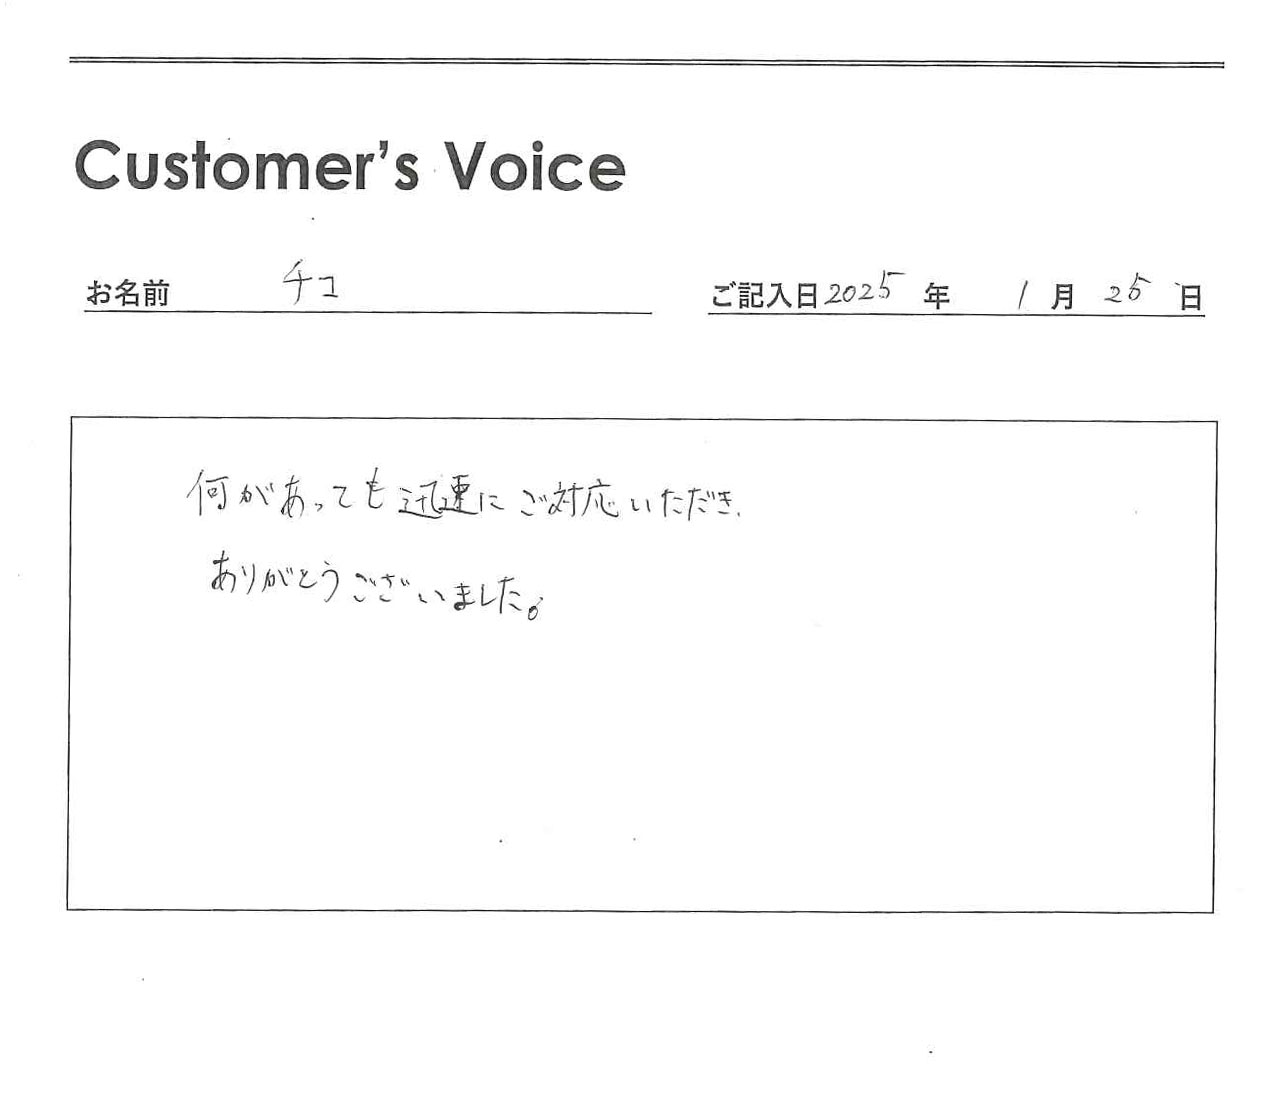 Customer's Voice
お名前 チコ
ご記入日 2025 年 1 月 25 日
何があっても迅速にご対応いただき、
ありがとうございました。